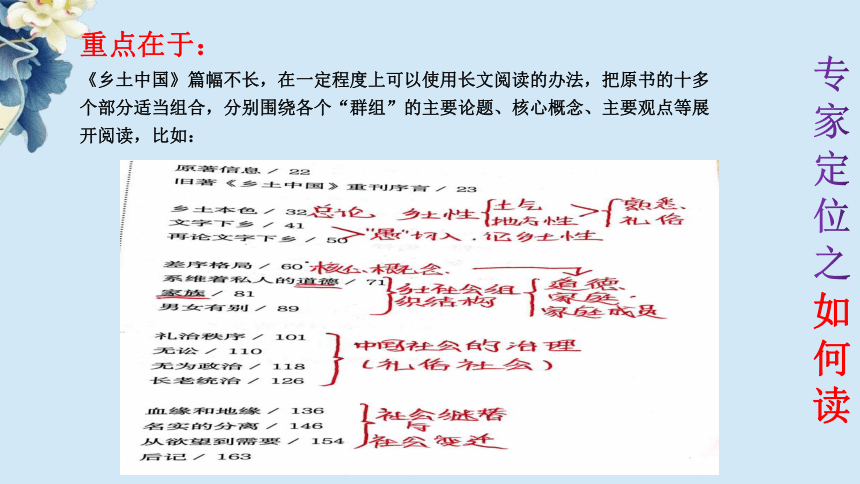 重点在于：
《乡土中国》篇幅不长，在一定程度上可以使用长文阅读的办法，把原书的十多
个部分适当组合，分别围绕各个“群组”的主要论题、核心概念、主要观点等展
开阅读，比如：
专家定位之如何读
原著信息 / 22
旧著《乡土中国》重刊序言 / 23
乡土本色 / 32 总论 乡土性 土气 地方性 > 熟悉、礼俗
文字下乡 / 41
再论文字下乡 / 50 >"愚"切入，记乡土性
差序格局 / 60 核心概念
系维着私人的道德 / 71
家族 / 81
男女有别 / 89
乡社会组织结构
道德、
家庭、
家庭成员
礼治秩序 / 101
无讼 / 110
无为政治 / 118
长老统治 / 126
中国社会的治理
（礼俗社会）
血缘和地缘 / 136
名实的分离 / 146
从欲望到需要 / 154
后记 / 163
社会继替
与
社会变迁